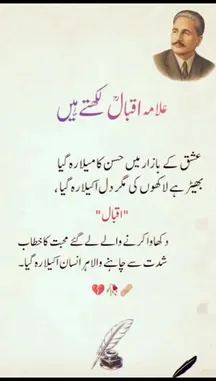 علامہ اقبالؒ لکھتے ہیں
عشق کے بازار میں حسن کا میلا رہ گیا
بھیڑ ہے لاکھوں کی مگر دل اکیلا رہ گیا ،
"اقبال"
دکھاوا کرنے والے لے گئے محبت کا خطاب
شدت سے چاہنے والا ہر انسان اکیلا رہ گیا۔